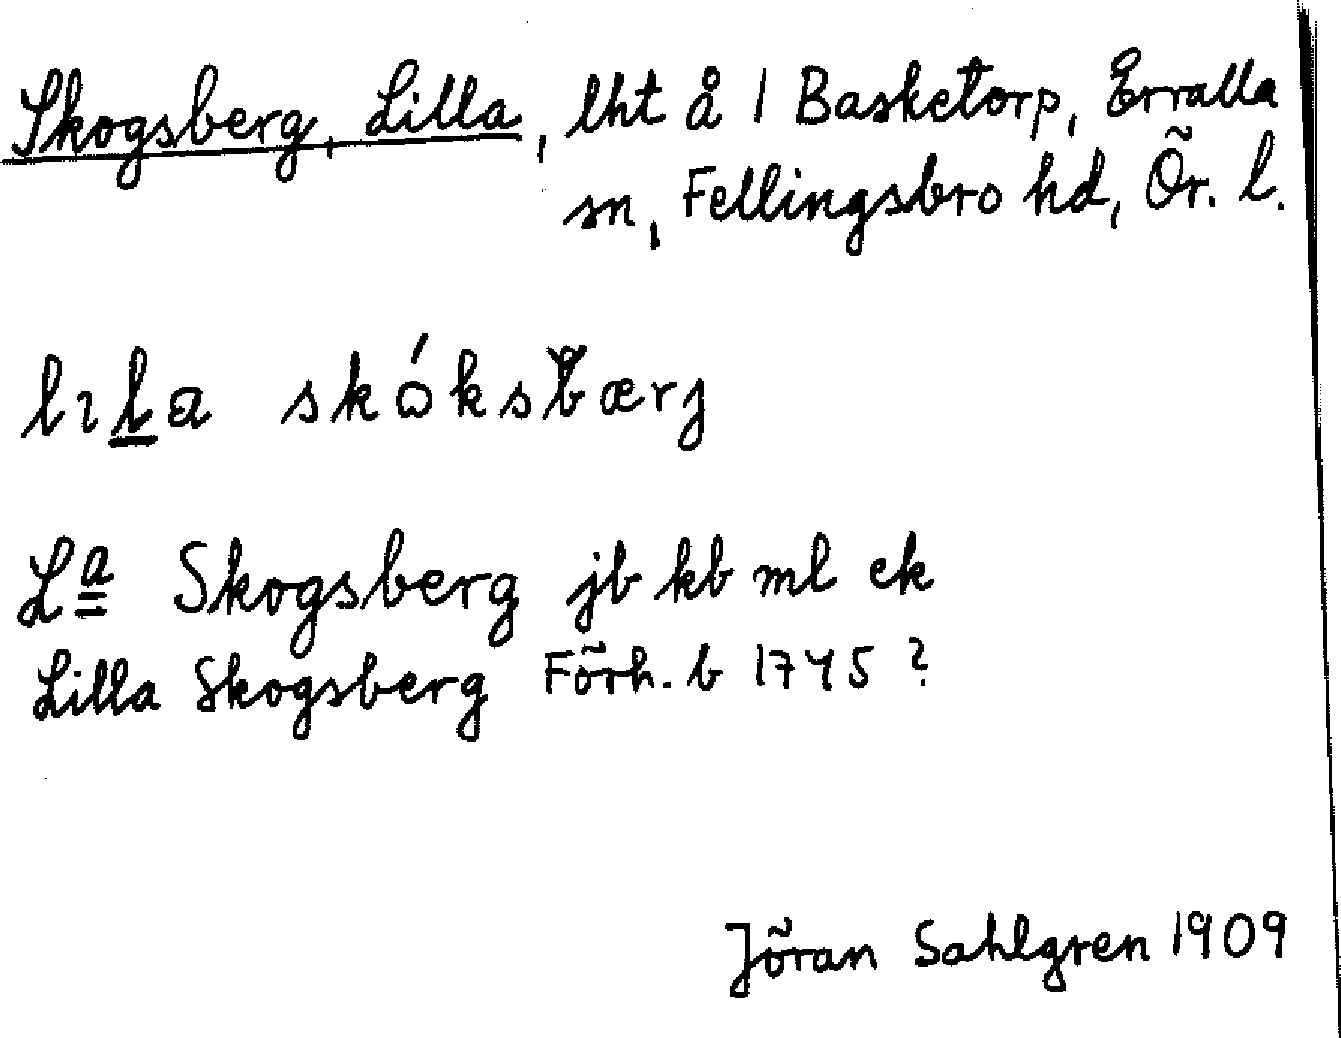 Skogsberg, Lilla, lht å 1 Basketorp, Ervalla
sn, Fellingsbro hd, Ör. l.
lıla skóksbærj
La Skogsberg jb kb ml ek
Lilla Skogsberg Förh. b 1745 ?
Jöran Sahlgren 1909